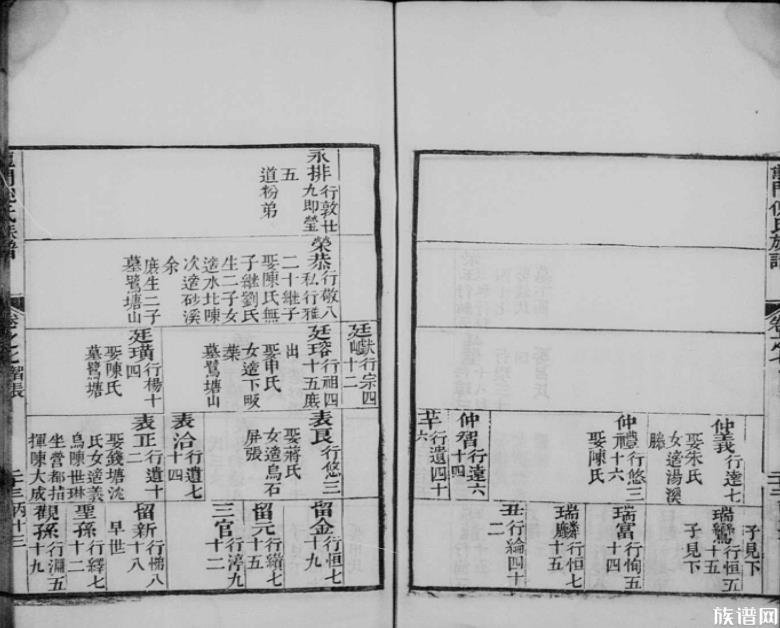 子見下
瑞鸞行恒五
十五
仲義行達七
娶朱氏
女適湯溪
滕
子見下
瑞富行恂五
十四
仲禮行悠三
十六
娶陳氏
瑞麟行恒七
十五
仲智行達六
十四
丑行綸四十
二
芊行遺四十
六
廷獻行宗四
十二
永排行敦廿
九即瑩
五
道粉弟
榮恭行敬八
私行雅
二十繼子
娶陳氏無
子繼劉氏
生二子女
適水北陳
次適砂溪
余
庶生二子
墓鷺塘山
廷瑢行祖四
十五庶
出
娶申氏
女適下畈
葉
墓鷺塘山
表良行悠三
娶蔣氏
女適烏石
屏張
留金行恒七
十九
留元行績七
十五
三官行渟九
十二
廷璜行楊十
四
娶陳氏
墓鷺塘
表洽行遺七
十四
表正行遺十
二
娶錢塘沈
氏女適義
烏陳世琳
坐營都指
揮陳大成
留新行悌八
十八
早世
聖孫行繹七
十二
觀孫行淵五
十九
卷之七
二十三
丙十三
族谱网